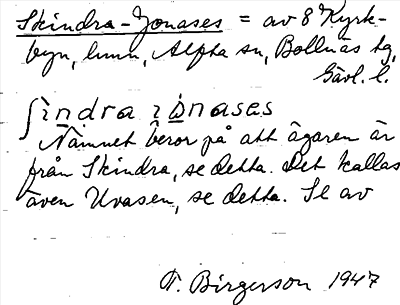 Skindra-Jonases = av 8 Kyrk-
byn, hmn, Alfta sn, Bollnäs tg,
Gävl. l.
ʃindra jònases
Namnet beror på att ägaren är
från Skindra, se detta. Det kallas
även Uvasen, se detta. Se av
T. Birgerson 1947